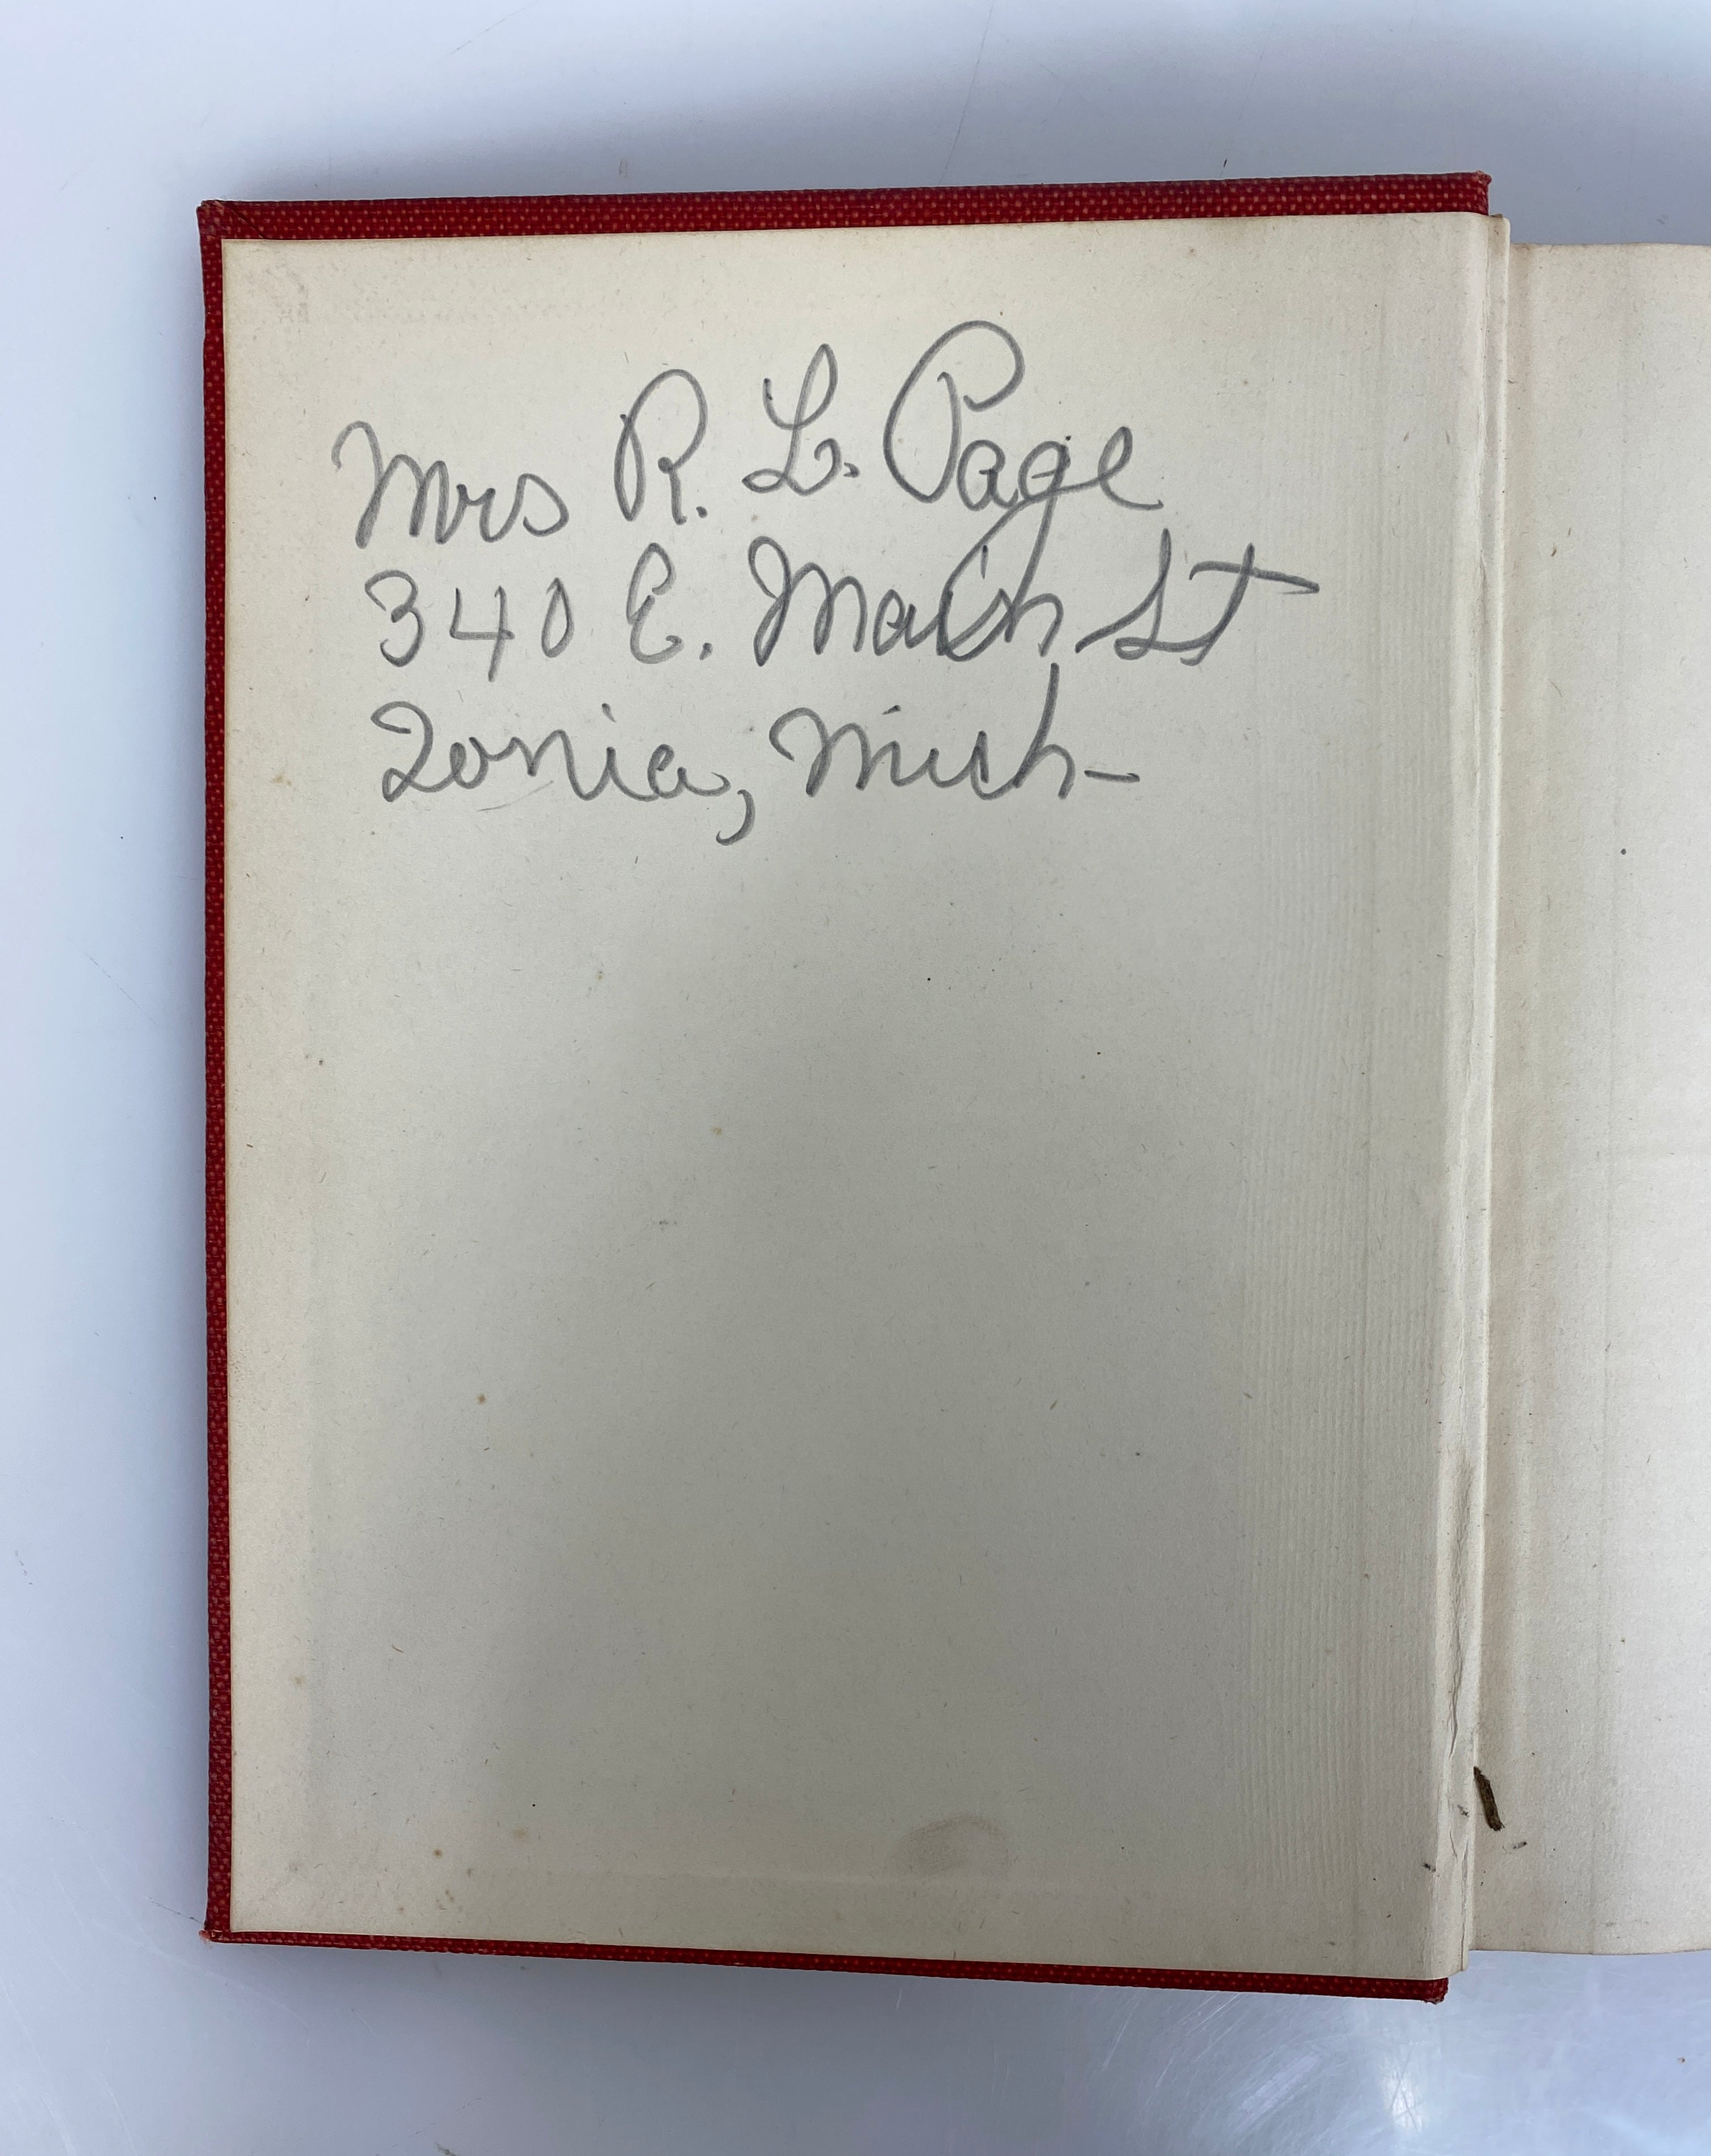 Mrs R. L. Page
340 E. Main St
Ionia, Mich-